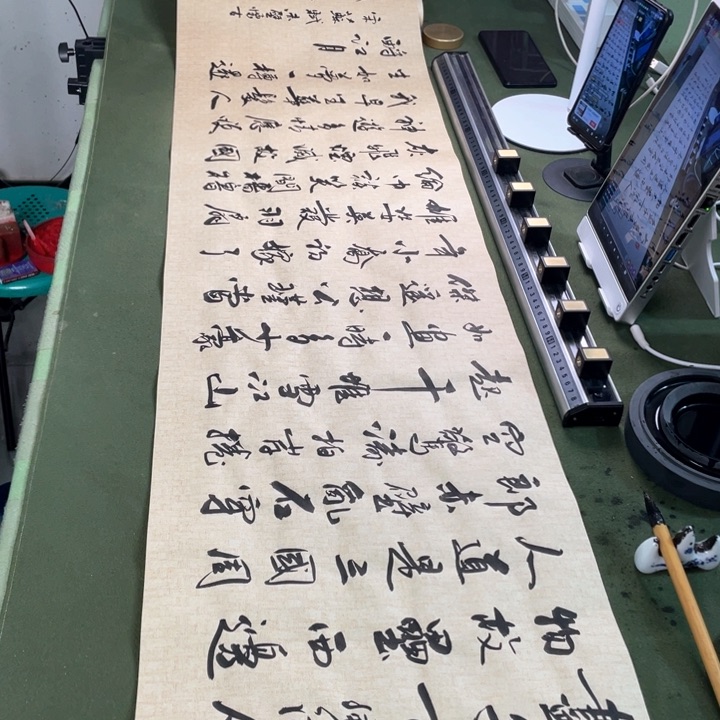 物故壘西邊
人道是三國周
郎赤壁亂石穿
空驚濤拍岸捲
起千堆雪江山
如畫一時多少豪
傑遙想公瑾當
年小喬初嫁了
雄姿英發羽扇
綸巾談笑間檣櫓
灰飛煙滅故國
神遊多情應笑
我早生華髮人
生如夢一樽還
酹江月
宋蘇軾赤壁懷古